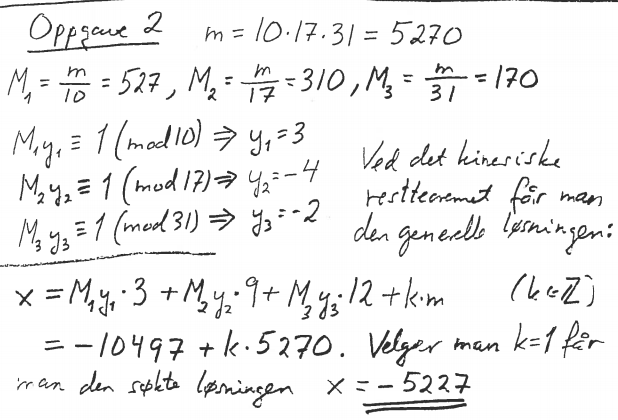 Oppgave 2 m = 10·17·31 = 5270
M₁ = m/10 = 527, M₂ = m/17 = 310, M₃ = m/31 = 170
M₁y₁ ≡ 1 (mod 10) ⇒ y₁ = 3
M₂y₂ ≡ 1 (mod 17) ⇒ y₂ = -4
M₃y₃ ≡ 1 (mod 31) ⇒ y₃ = -2
Ved det kinesiske
restteoremet får man
den generelle løsningen:
x = M₁y₁·3 + M₂y₂·9 + M₃y₃·12 + k·m (k∈ℤ)
= -10497 + k·5270. Velger man k=1 får
man den søkte løsningen x = -5227